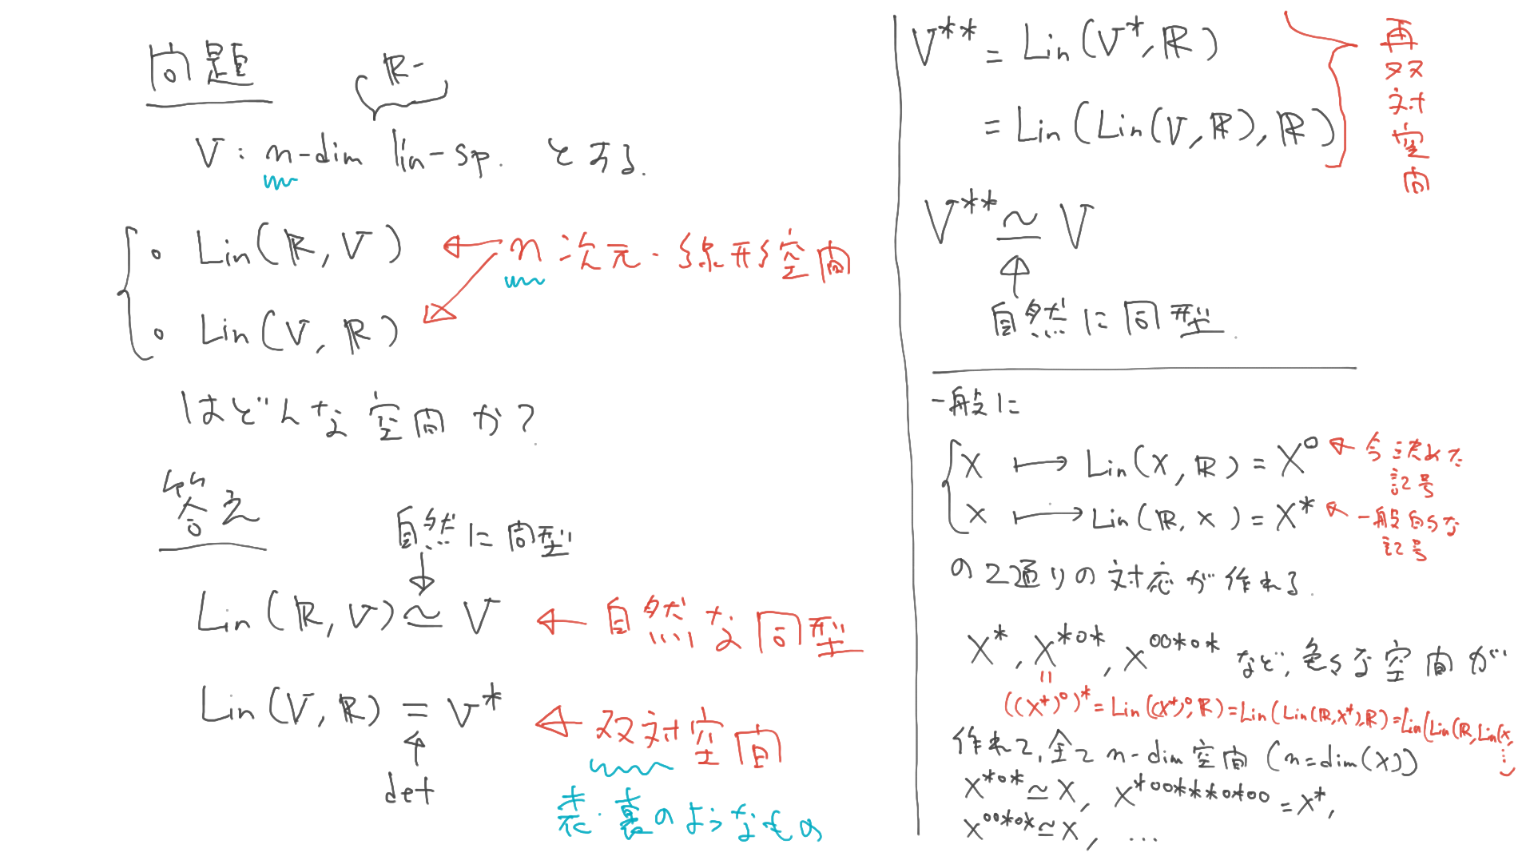 問題
ℝ-
V : n-dim lin-sp. とする.
• Lin(ℝ, V)
n次元・線形空間
• Lin(V, ℝ)
はどんな空間か?
答え
自然に同型
Lin(ℝ, V) ≃ V ← 自然な同型
Lin(V, ℝ) = V* ← 双対空間
det
表・裏のようなもの
V** = Lin(V*, ℝ)
= Lin(Lin(V, ℝ), ℝ)
再双対空間
V** ≃ V
自然に同型.
一般に
X ↦ Lin(X, ℝ) = X° ← 今決めた記号
X ↦ Lin(ℝ, X) = X* ← 一般的な記号
の2通りの対応が作れる.
X*, X*°*, X°°*°* など, 色々な空間が
((X*)°)* = Lin((X*)°, ℝ) = Lin(Lin(ℝ, X*), ℝ) = Lin(Lin(ℝ, Lin(X, …)
作れて, 全て n-dim 空間 (n=dim(X))
X*°* ≃ X, X*°°***°*°° = X*,
X°°*°* ≃ X, …